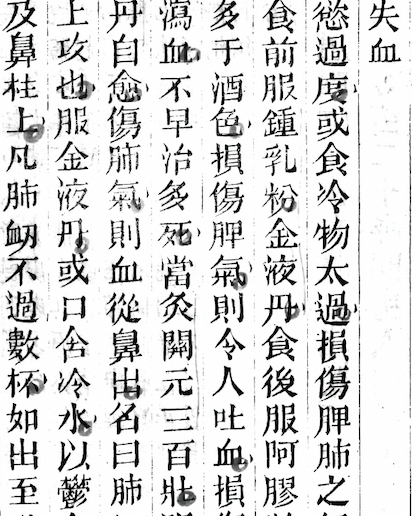 失血
慾過度或食冷物太過損傷脾肺之
食前服鍾乳粉金液丹食後服阿膠
多于酒色損傷脾氣則令人吐血損
瀉血不早治多死當灸關元三百壯
丹自愈傷肺氣則血從鼻出名曰肺
上攻也服金液丹或口含冷水以鬱
及鼻柱上凡肺衂不過數杯如出至